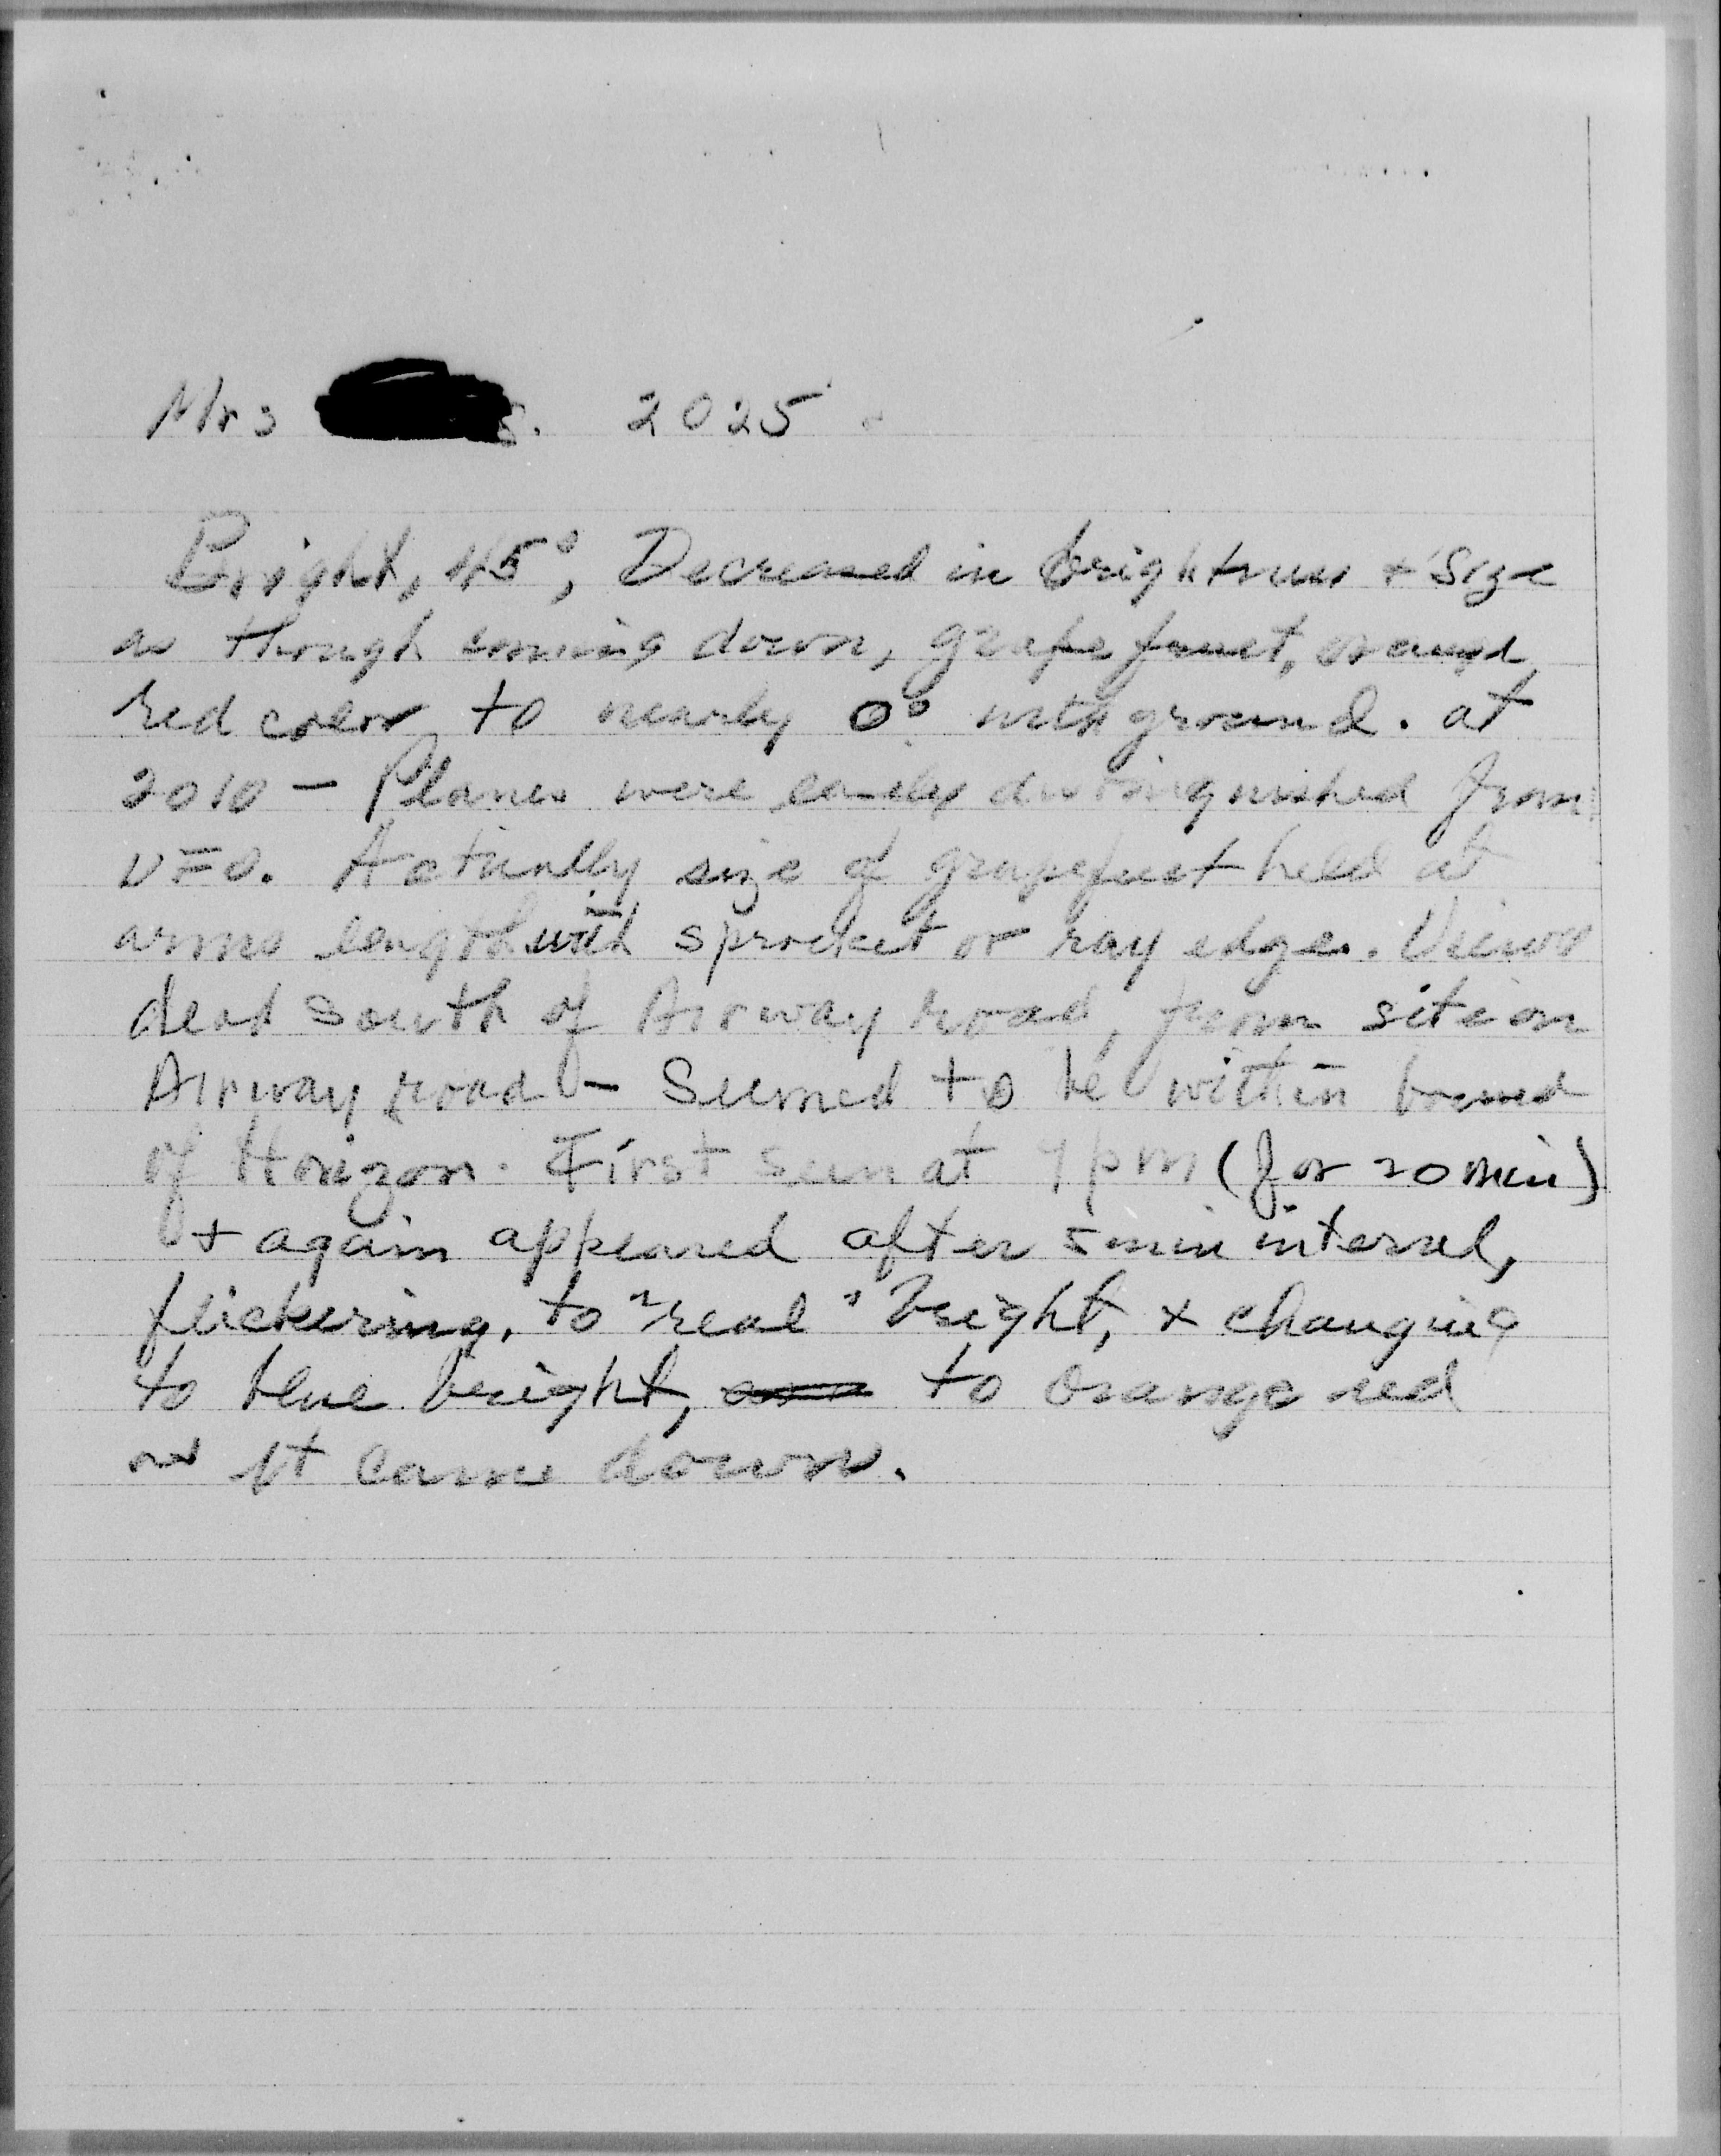 Mrs s. 2025
Bright, 45°, Decreased in brightness + size
as though coming down, grapefruit, orange
red color to nearly 0° with ground. at
2010 — Planes were easily distinguished from
UFO. Actually size of grapefruit held at
arms length with sprocket or ray edge. Views
dead south of Airway road, from site on
Airway road — Seemed to be within bound
of Horizon. First seen at pm (for 20 min)
+ again appeared after 5 min interval,
flickering, to "real" bright, + changing
to blue bright, to orange red
as it came down.